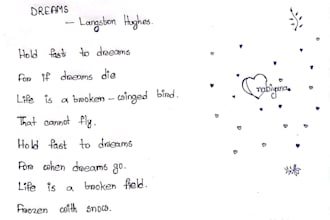 DREAMS
— Langston Hughes.
Hold fast to dreams
For if dreams die
Life is a broken - winged bird.
That cannot fly.
Hold fast to dreams
For when dreams go.
Life is a broken field.
Frozen with snow.
rabiyana